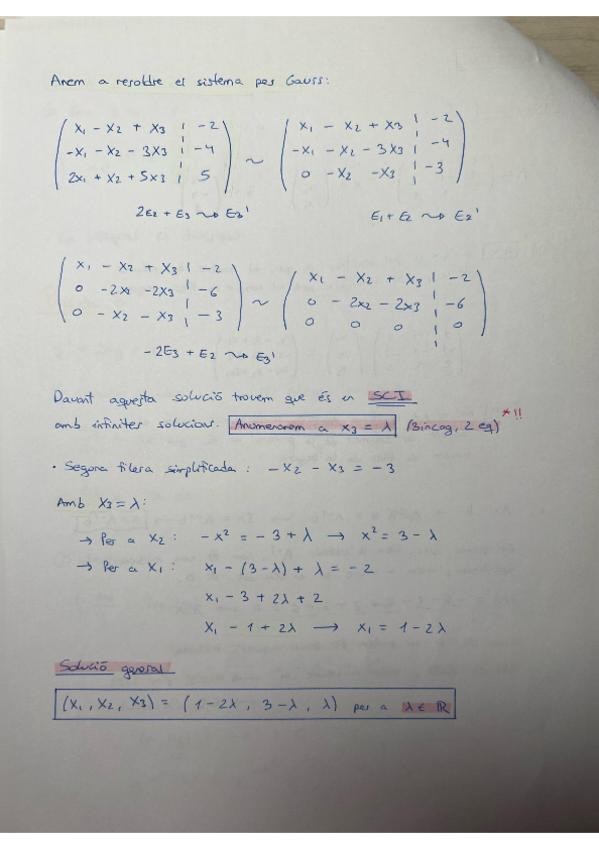 Anem a resoldre el sistema per Gauss:
x₁ - x₂ + x₃ | -2
-x₁ - x₂ - 3x₃ | -4
2x₁ + x₂ + 5x₃ | 5
~
x₁ - x₂ + x₃ | -2
-x₁ - x₂ - 3x₃ | -4
0 -x₂ -x₃ | -3
2E₂ + E₃ ⇝ E₃'
E₁ + E₂ ⇝ E₂'
x₁ - x₂ + x₃ | -2
0 -2x₂ -2x₃ | -6
0 - x₂ - x₃ | -3
~
x₁ - x₂ + x₃ | -2
0 - 2x₂ - 2x₃ | -6
0 0 0 | 0
-2E₃ + E₂ ⇝ E₃'
Davant aquesta solució trovem que és un SCI
amb infinites solucions. Anumenarem a x₃ = λ (3incog, 2 eq) *!!
• Segona filera simplificada: -x₂ - x₃ = -3
Amb x₃ = λ:
→ Per a x₂: -x² = -3 + λ → x² = 3 - λ
→ Per a x₁: x₁ - (3-λ) + λ = -2
x₁ - 3 + 2λ + 2
x₁ - 1 + 2λ ⟶ x₁ = 1 - 2λ
Solució general
(x₁, x₂, x₃) = (1-2λ, 3-λ, λ) per a λ ∈ ℝ